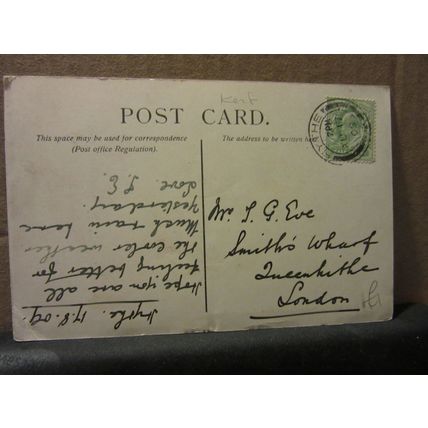 Kent
POST CARD.
This space may be used for correspondence
(Post office Regulation).
The address to be written
Hythe. 17.8.09.
Hope you are all
feeling better for
the cooler weather
Much rain here
yesterday.
Love. S.E.
Mr. S. G. Eve
Smith's Wharf
Queenhithe
London